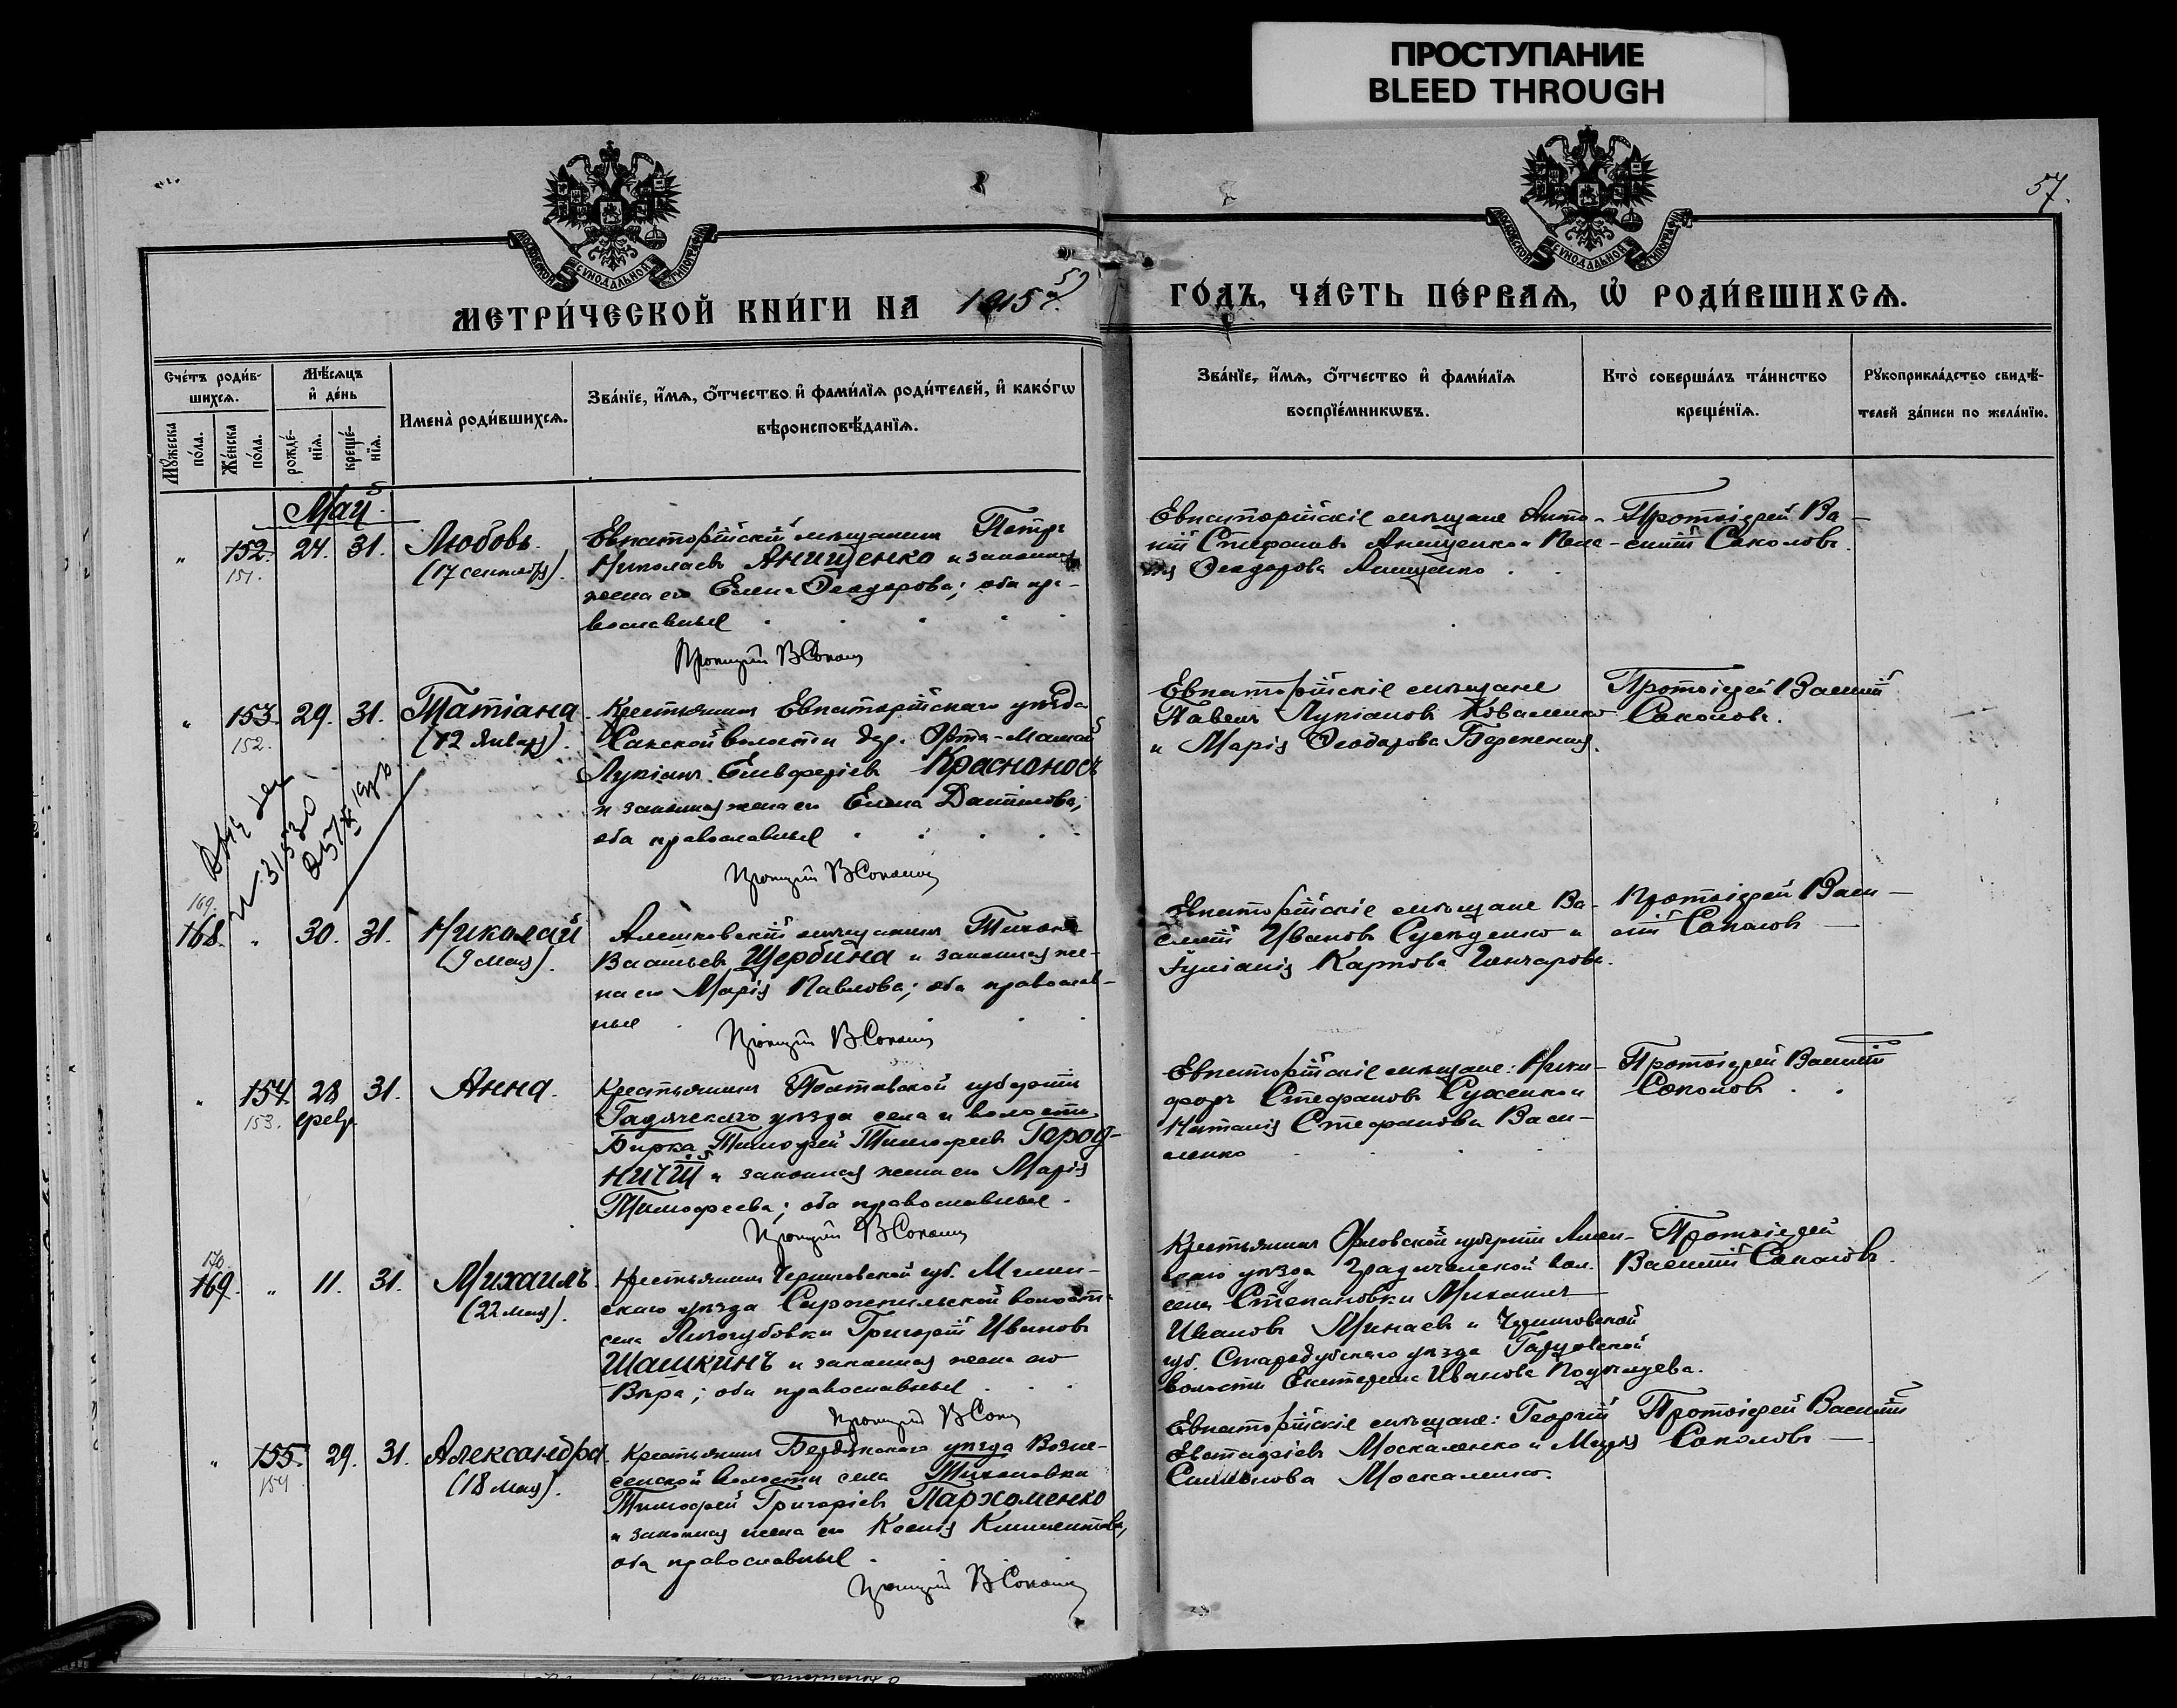 ПРОСТУПАНИЕ
BLEED THROUGH
57.
МОСКОВСКОЙ СѴНОДАЛЬНОЙ ТИПОГРАФІИ
МОСКОВСКОЙ СѴНОДАЛЬНОЙ ТИПОГРАФІИ
МЕТРИ́ЧЕСКОЙ КНИ́ГИ НА 1915 й ГО́ДЪ, ЧА́СТЬ ПЕ́РВАѦ, Ѡ РОДИ́ВШИХСѦ.
Сче́тъ роди́в-
шихсѧ.
Мꙋ́жеска по́ла.
Же́нска по́ла.
Мѣ́сѧцъ и де́нь
рожде́-нїѧ.
креще́-нїѧ.
Имена̀ роди́вшихсѧ.
Зва́нїе, и́мѧ, о́тчество и фами́лїѧ роди́телей, и како́гѡ
вѣроисповѣ́данїѧ.
Зва́нїе, и́мѧ, о́тчество и фами́лїѧ
воспрїе́мникѡвъ.
Кто̀ соверша́лъ та́инство
креще́нїѧ.
Рꙋкоприкла́дство свидѣ́-
телей за́писи по жела́нїю.
Май.
" 152. 24. 31. Любовь
151.
(17 сентября).
Евпаторійскій мѣщанинъ Петръ
Николаевъ Анищенко и законная
жена его Елена Ѳеодорова; оба пра-
вославные
Протоіерей В Соколовъ
Евпаторійскіе мѣщане Анто-
ній Стефановъ Анищенко и
Ѳеодорова Анищенко
Протоіерей Ва-
силій Соколовъ.
" 153. 29. 31. Татіана
152.
(12 Января).
Крестьянинъ Евпаторійскаго уѣзда
Сакской волости дер. Орта-Мамай
Лукіанъ Елевферіевъ Красноносъ
и законная жена его Елена Даніилова;
оба православные
Протоіерей В Соколовъ
Евпаторійскіе мѣщане
Павелъ Лукіановъ Коваленко
и Марія Ѳеодорова
Протоіерей Василій
Соколовъ.
№ 31530
169.
168. " 30. 31. Николай
(9 мая).
Алешковскій мѣщанинъ Тихонъ
Васильевъ Щербина и законная же-
на его Марія Павлова; оба православ-
ные
Протоіерей В Соколовъ
Евпаторійскіе мѣщане Ва-
силій Ивановъ и
Іуліанія Карпова Гончарова.
Протоіерей Васи-
лій Соколовъ
" 154. 28 31. Анна.
153. февр.
Крестьянинъ Полтавской губерніи
Гадячскаго уѣзда села и волости
Бирка Тимофей Тимофеевъ Город-
ничій и законная жена его Марія
Тимофеева; оба православные.
Протоіерей В Соколовъ
Евпаторійскіе мѣщане: Ники-
форъ Стефановъ Сухенко и
Наталія Стефанова Васи-
ленко
Протоіерей Василій
Соколовъ
170
169. " 11. 31. Михаилъ
(22 мая).
Крестьянинъ Черниговской губ. Мглин-
скаго уѣзда волости
села Лизогубовки Григорій Ивановъ
Шашкинъ и законная жена его
Вѣра; оба православные
Протоіерей В Соколовъ
Крестьянинъ Орловской губерніи
уѣзда вол.
села Степановки Михаилъ
Ивановъ Минаевъ и Черниговской
губ. Стародубскаго уѣзда
волости Екатерина Иванова
Протоіерей
Василій Соколовъ.
" 155. 29. 31. Александра
154
(18 мая).
Крестьянинъ Бердянскаго уѣзда Возне-
сенской волости села Тихоновки
Тимофей Григоріевъ Пархоменко
и законная жена его Ксенія Климентова,
оба православные
Протоіерей В Соколовъ
Евпаторійскіе мѣщане: Георгій
Евстафіевъ Москаленко и Марія
Симонова Москаленко.
Протоіерей Василій
Соколовъ